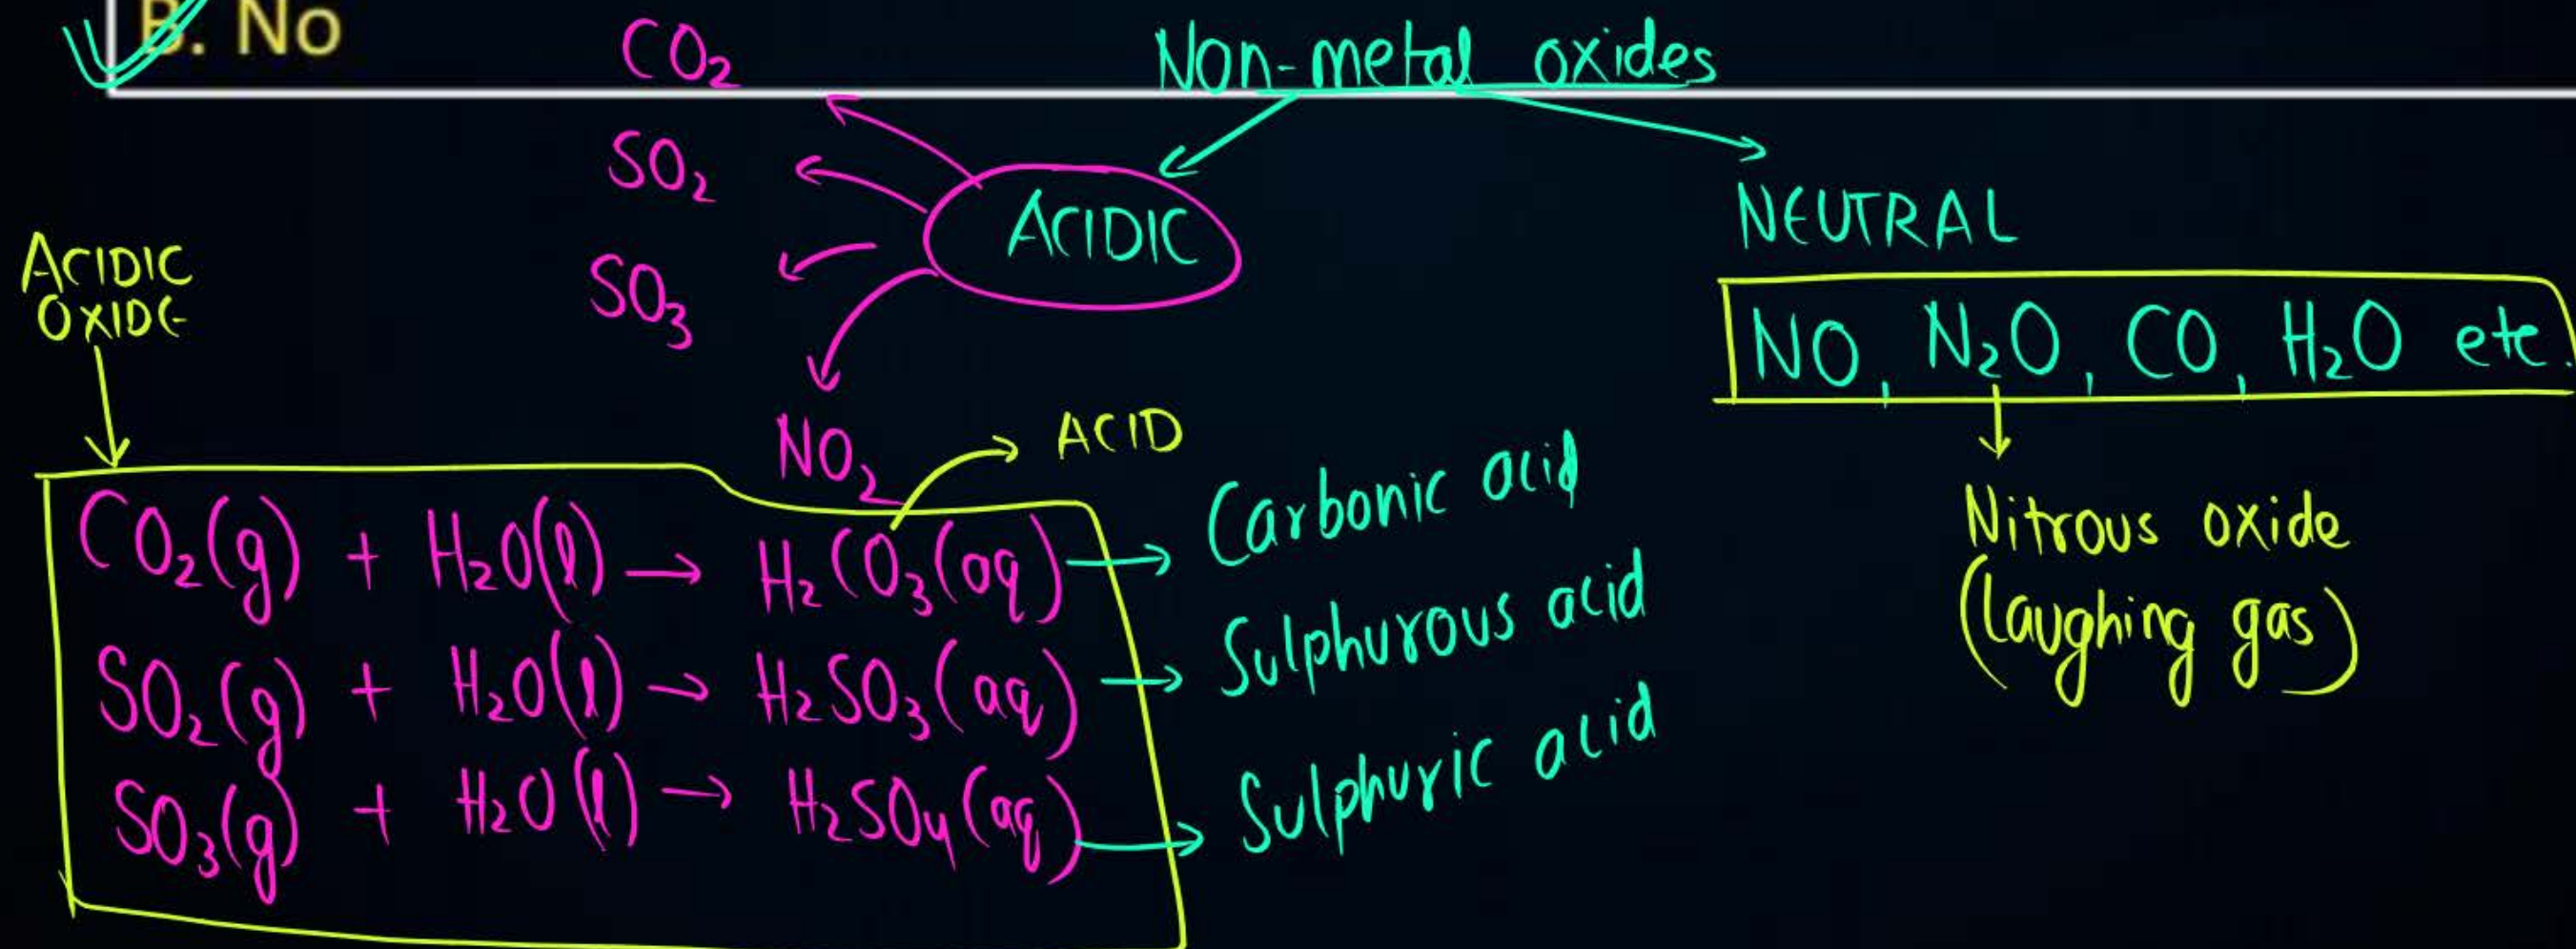 B. No
Non-metal oxides
CO₂
SO₂
SO₃
NO₂
ACIDIC
NEUTRAL
NO, N₂O, CO, H₂O etc.
Nitrous oxide
(laughing gas)
ACIDIC
OXIDE
ACID
CO₂(g) + H₂O(l) → H₂CO₃(aq) → Carbonic acid
SO₂(g) + H₂O(l) → H₂SO₃(aq) → Sulphurous acid
SO₃(g) + H₂O(l) → H₂SO₄(aq) → Sulphuric acid